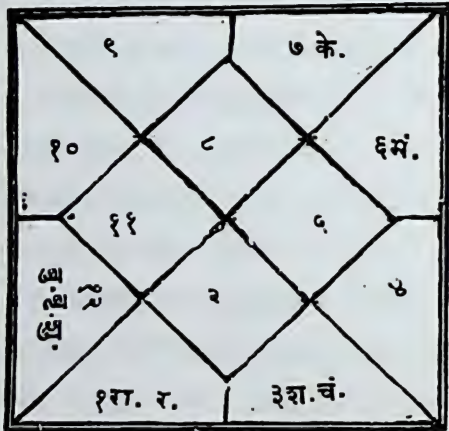 ९
७ के.
१०
८
६मं.
११
५
१२
बु.बृ.शु.
२
४
१रा. र.
३श.चं.